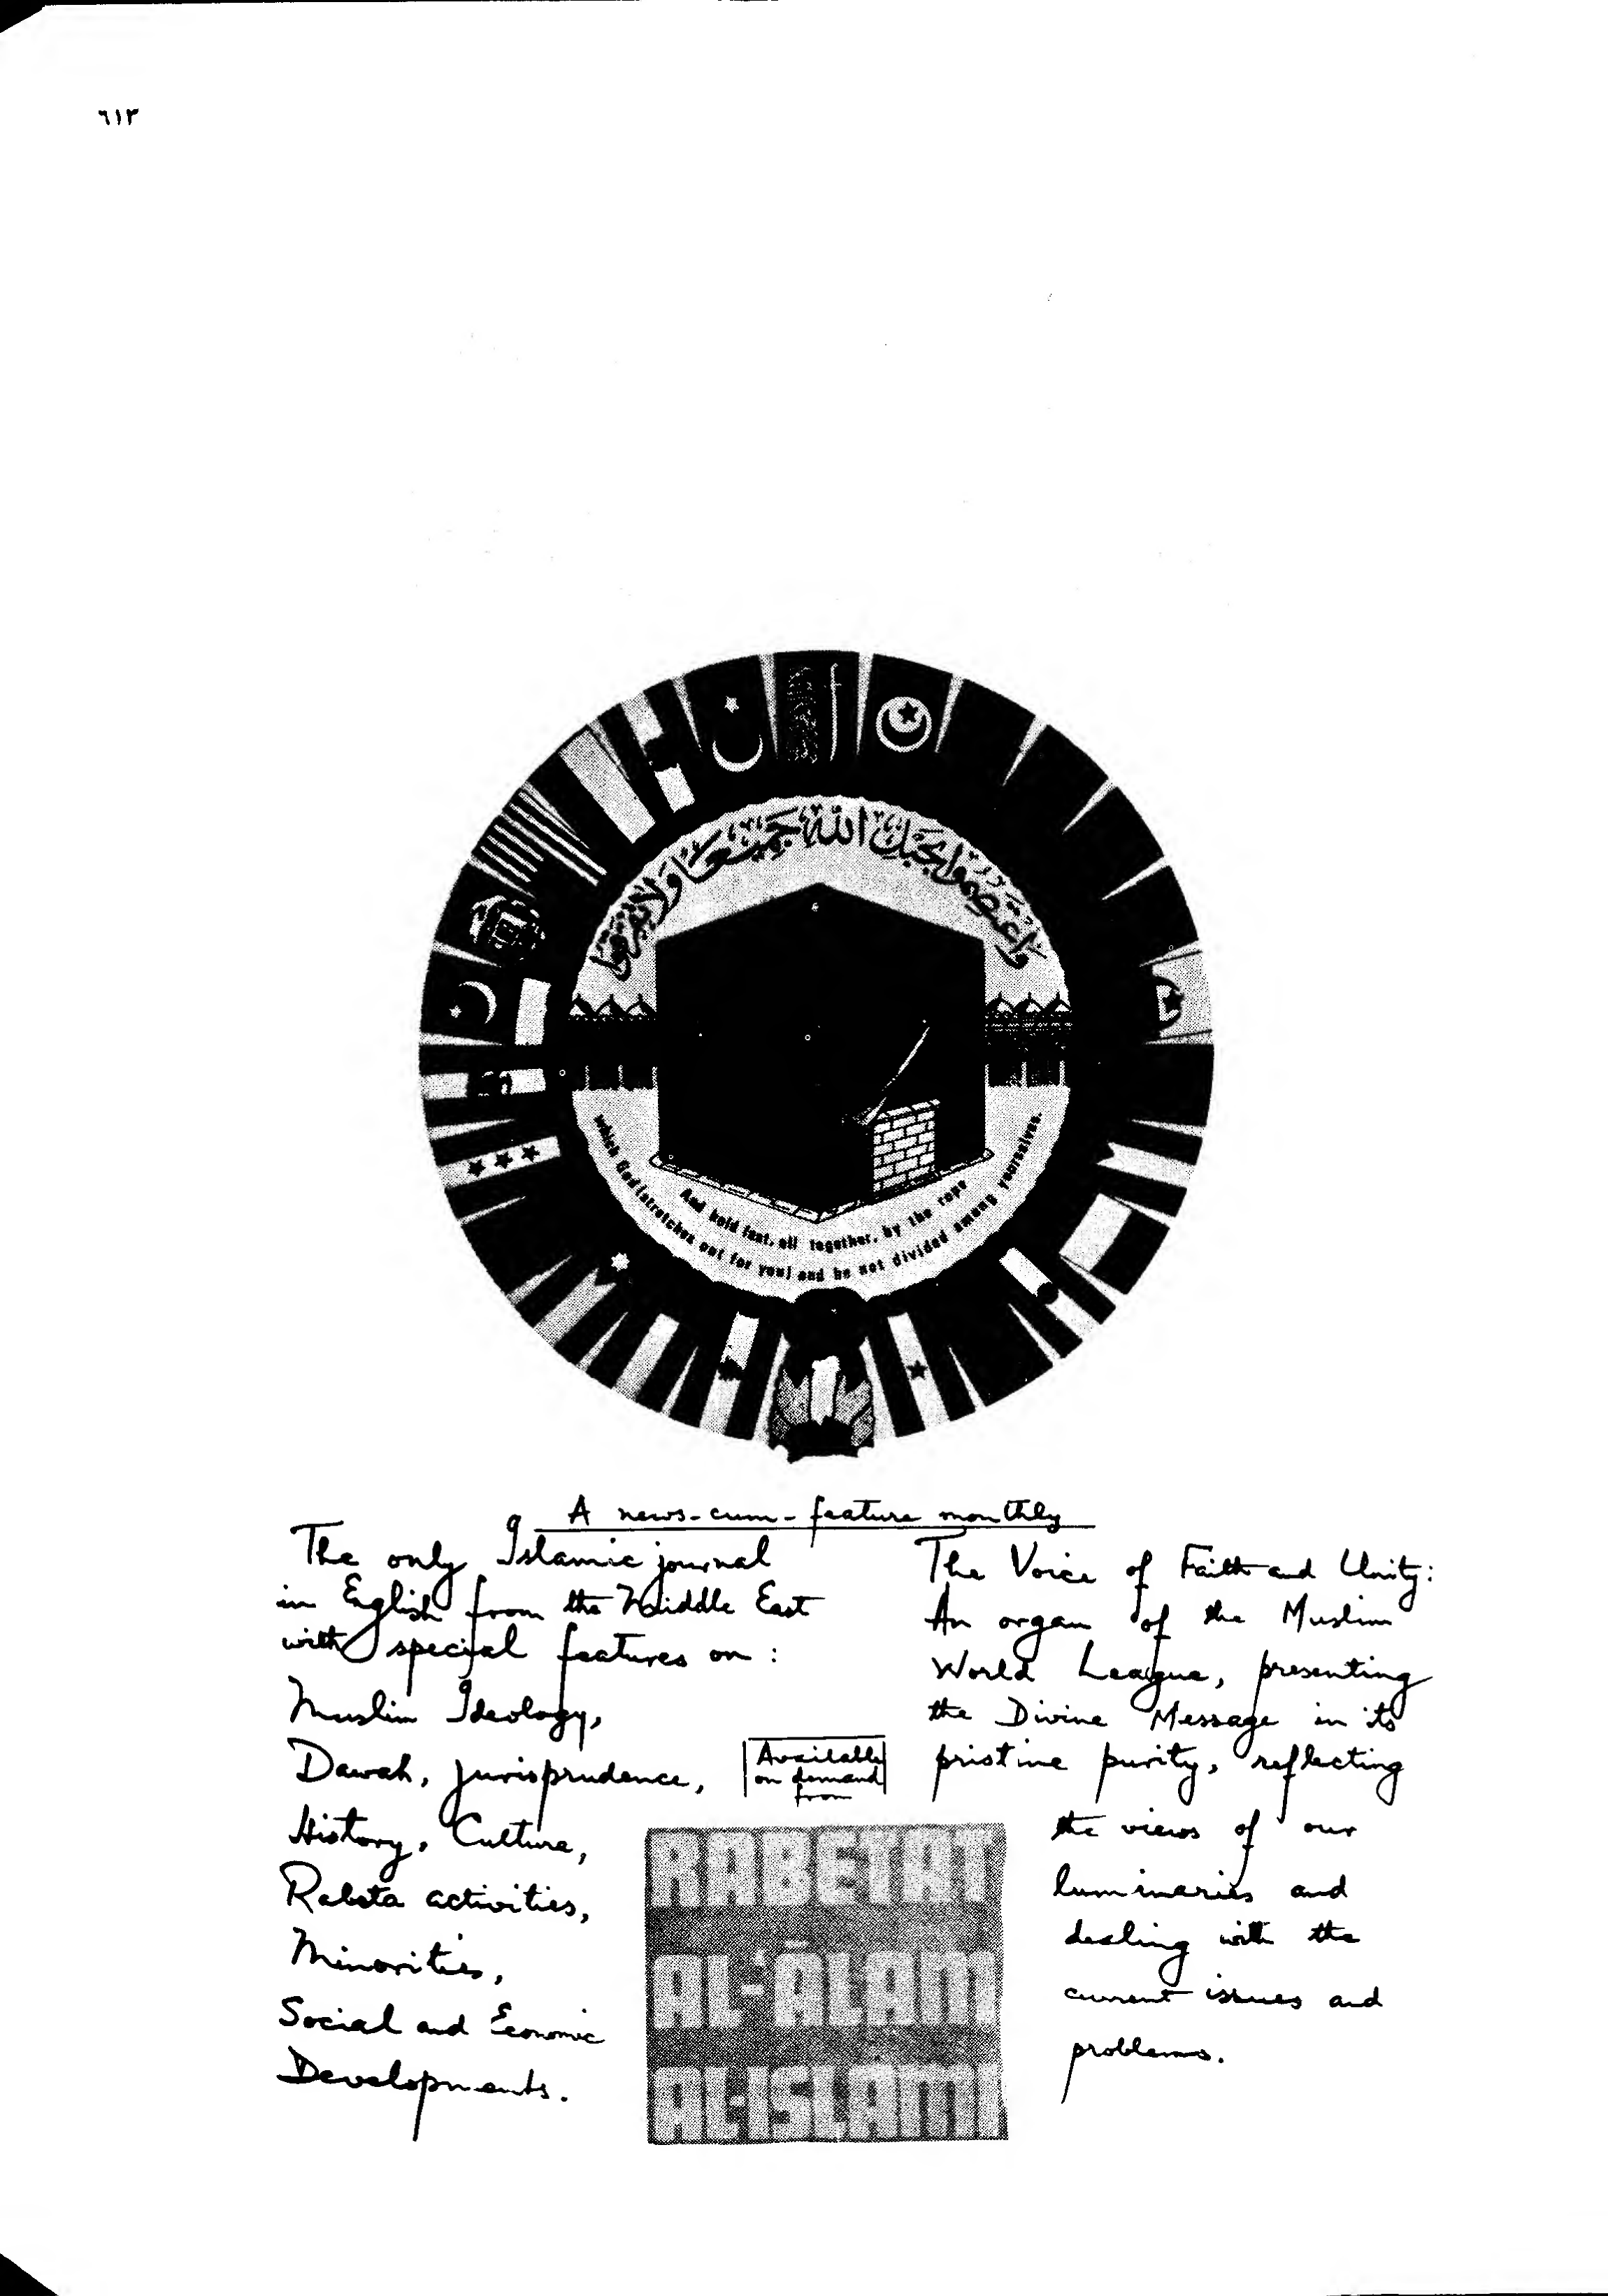 ٦١٣
واعتصموا بحبل الله جميعا ولا تفرقوا
And hold fast, all together, by the rope
which God (stretches out for you) and be not divided among yourselves.
A news-cum-feature monthly
The only Islamic journal
in English from the Middle East
with special features on :
Muslim Ideology,
Dawah, jurisprudence,
History, Culture,
Rabeta activities,
Minorities,
Social and Economic
Developments.
Available
on demand
from
RABETAT
AL-'ĀLAM
AL-ISLĀMI
The Voice of Faith and Unity:
An organ of the Muslim
World League, presenting
the Divine Message in its
pristine purity, reflecting
the views of our
luminaries and
dealing with the
current issues and
problems.